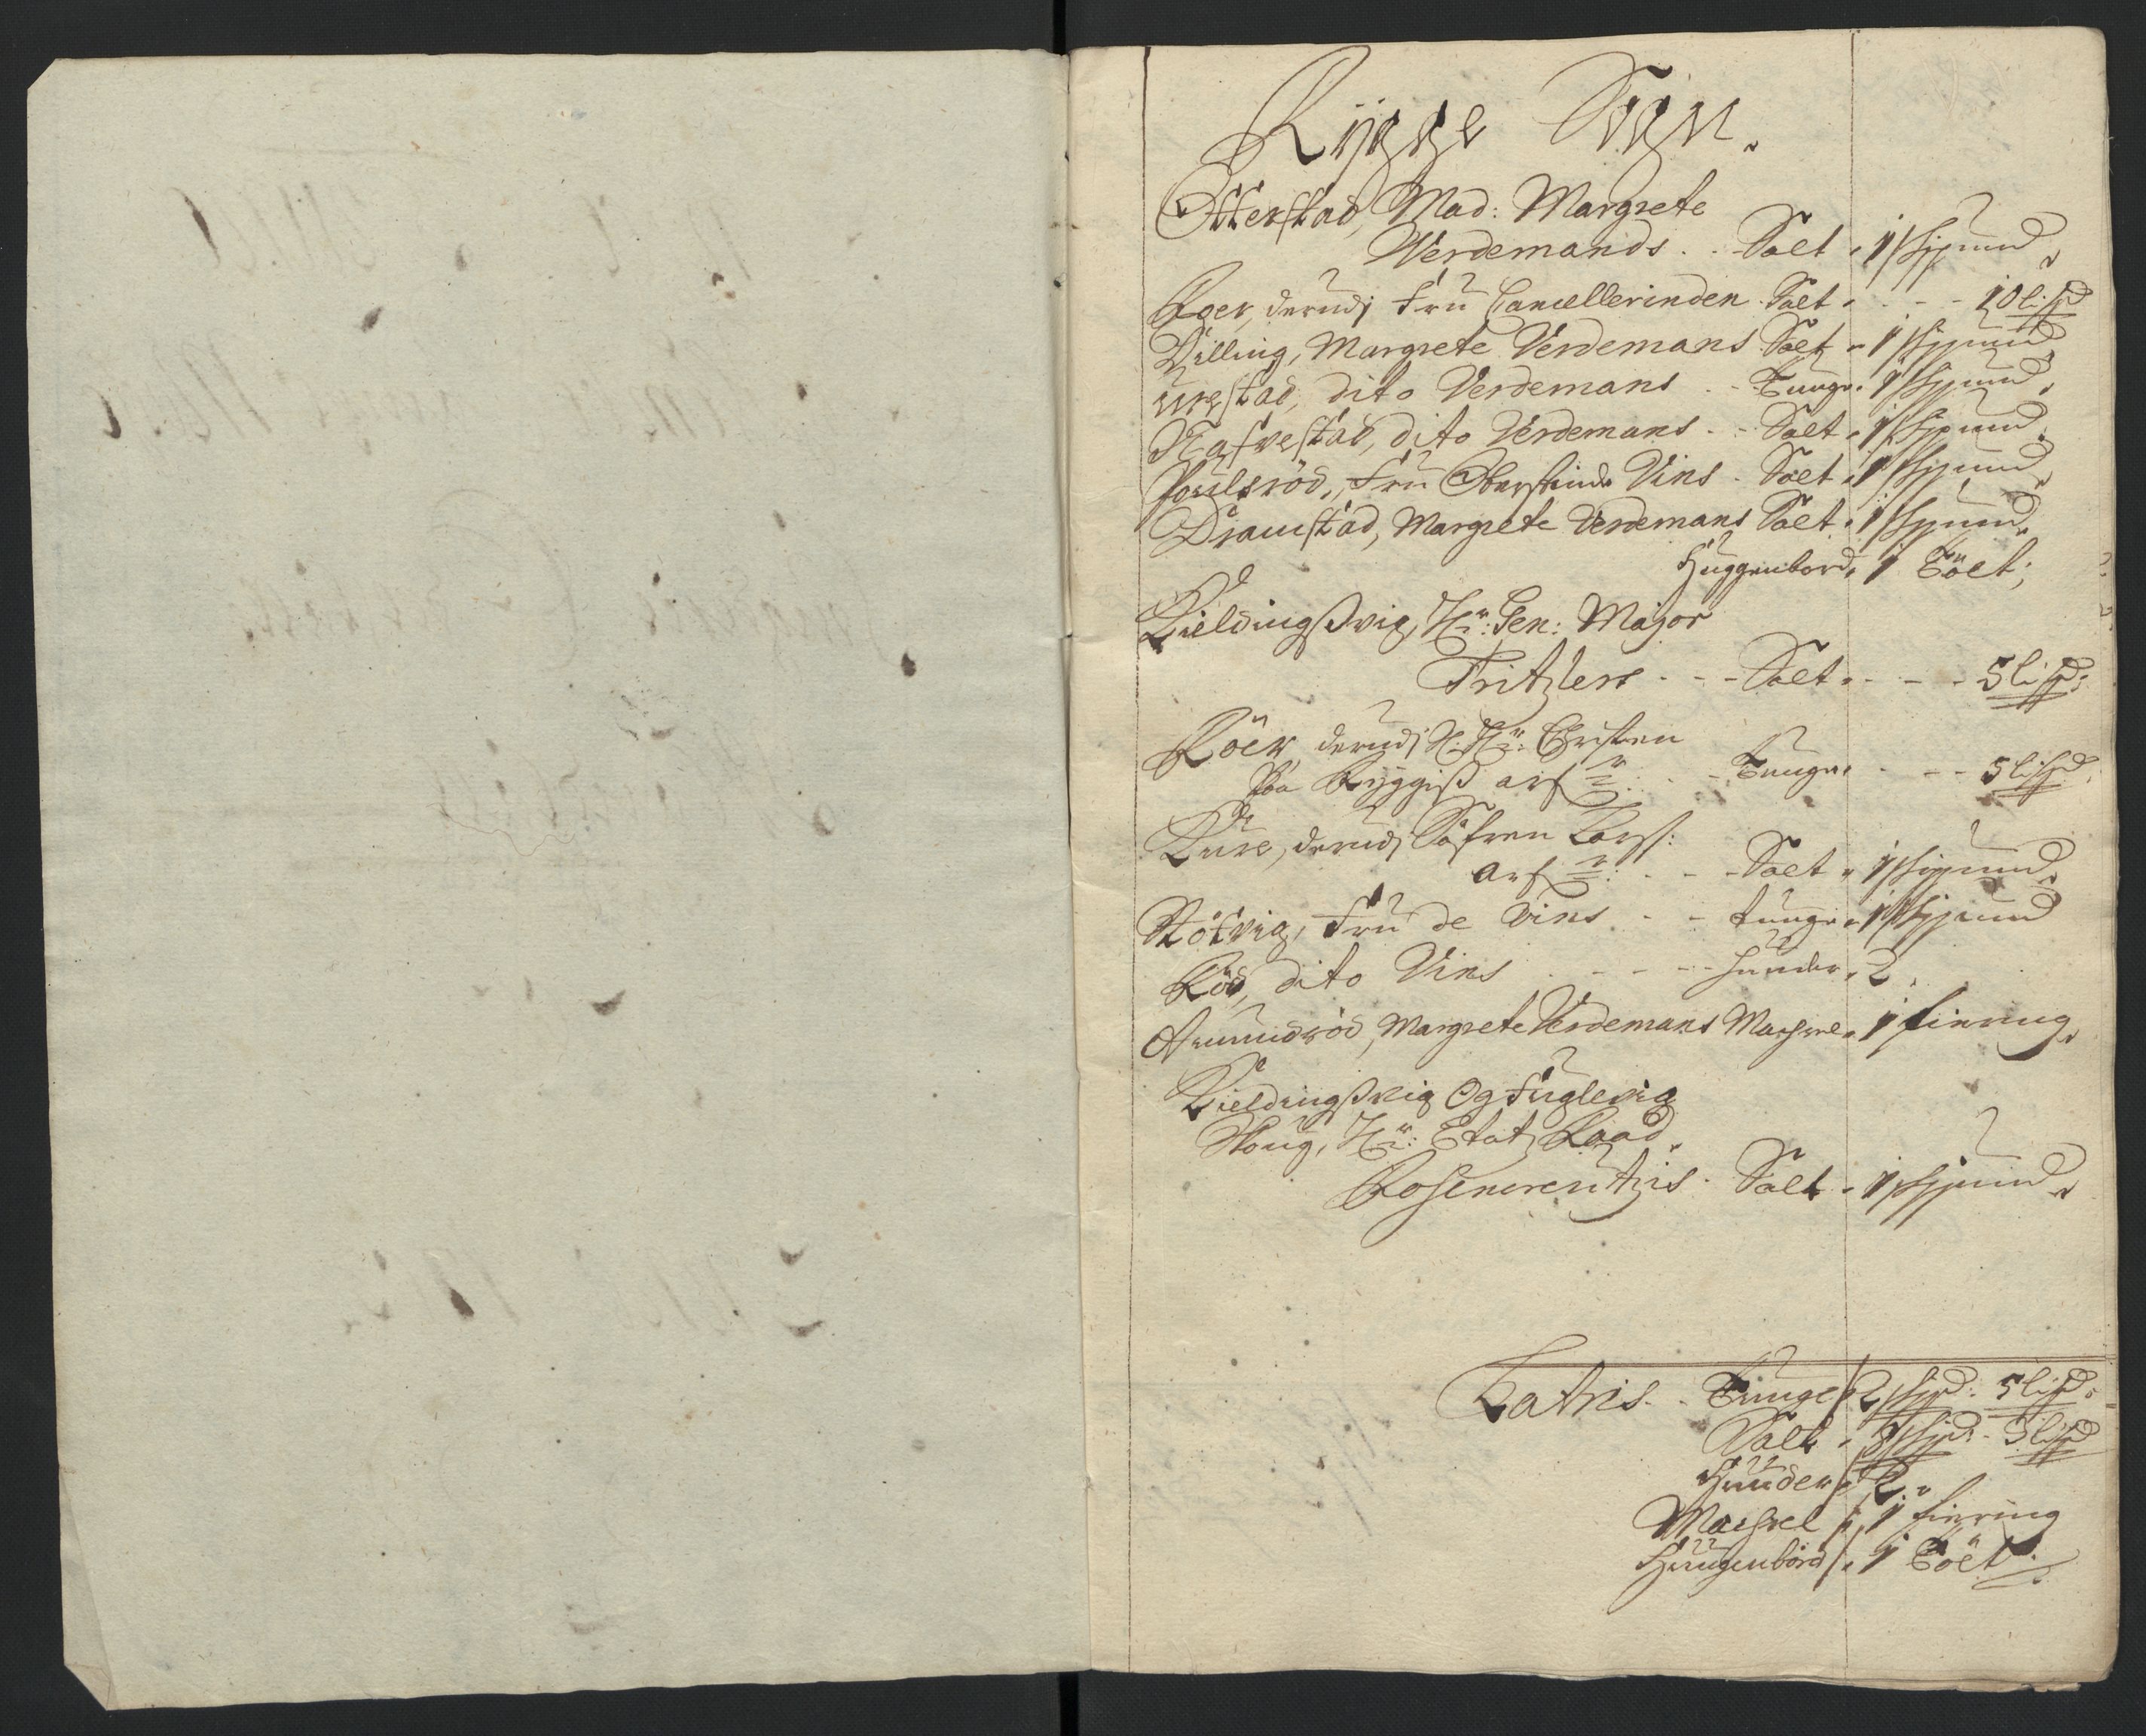 Rygge Sogn.
Otterstad, Mad: Margrete
Werdemands . . Salt . 1 skippund
Roer, derudj Fru Cancellerinden Salt . - - 10 lispd
Dilling, Margrete Verdemans Salt . 1 skippund
Urestad, dito Verdemans . . Tunge . 1 skippund
Nafvestad, dito Verdemans . . Salt . 1 skippund
Poulsröd, Fru Oberstinde Vins . Salt . 1 skippund
Dramstad, Margrete Verdemans Salt . 1 skippund
Huggenbord, 1 tölt;
Kieldingsvig, Hr: Gen: Major
Tritzlers - - - Salt . - - - 5 lispd:
Röer, derudj Hr: Christen
Paa Ryggis arf . . - Tunge . - - - 5 lispd.
Kure, derudj Söfren Lars:
Arf : - - - Salt . 1 skippund
Støtvig, Fru de Vins - - tunge . 1 skippund
Röd, dito Vins . - - - - huuder . 2 .
Amundröd, Margrete Verdemans Machrel . 1 fiering
Kieldingsvig Og Fuglevig
Skoug, Hr: Etatz Raad
Rosencreutzis . Salt . 1 skippund
Latris . . Tunge . 2 skipd: 5 lispd:
Salt . skipd: 5 lispd
Huuder . 2 .
Machrel . 1 fiering
Huugenbord . 1 tölt .